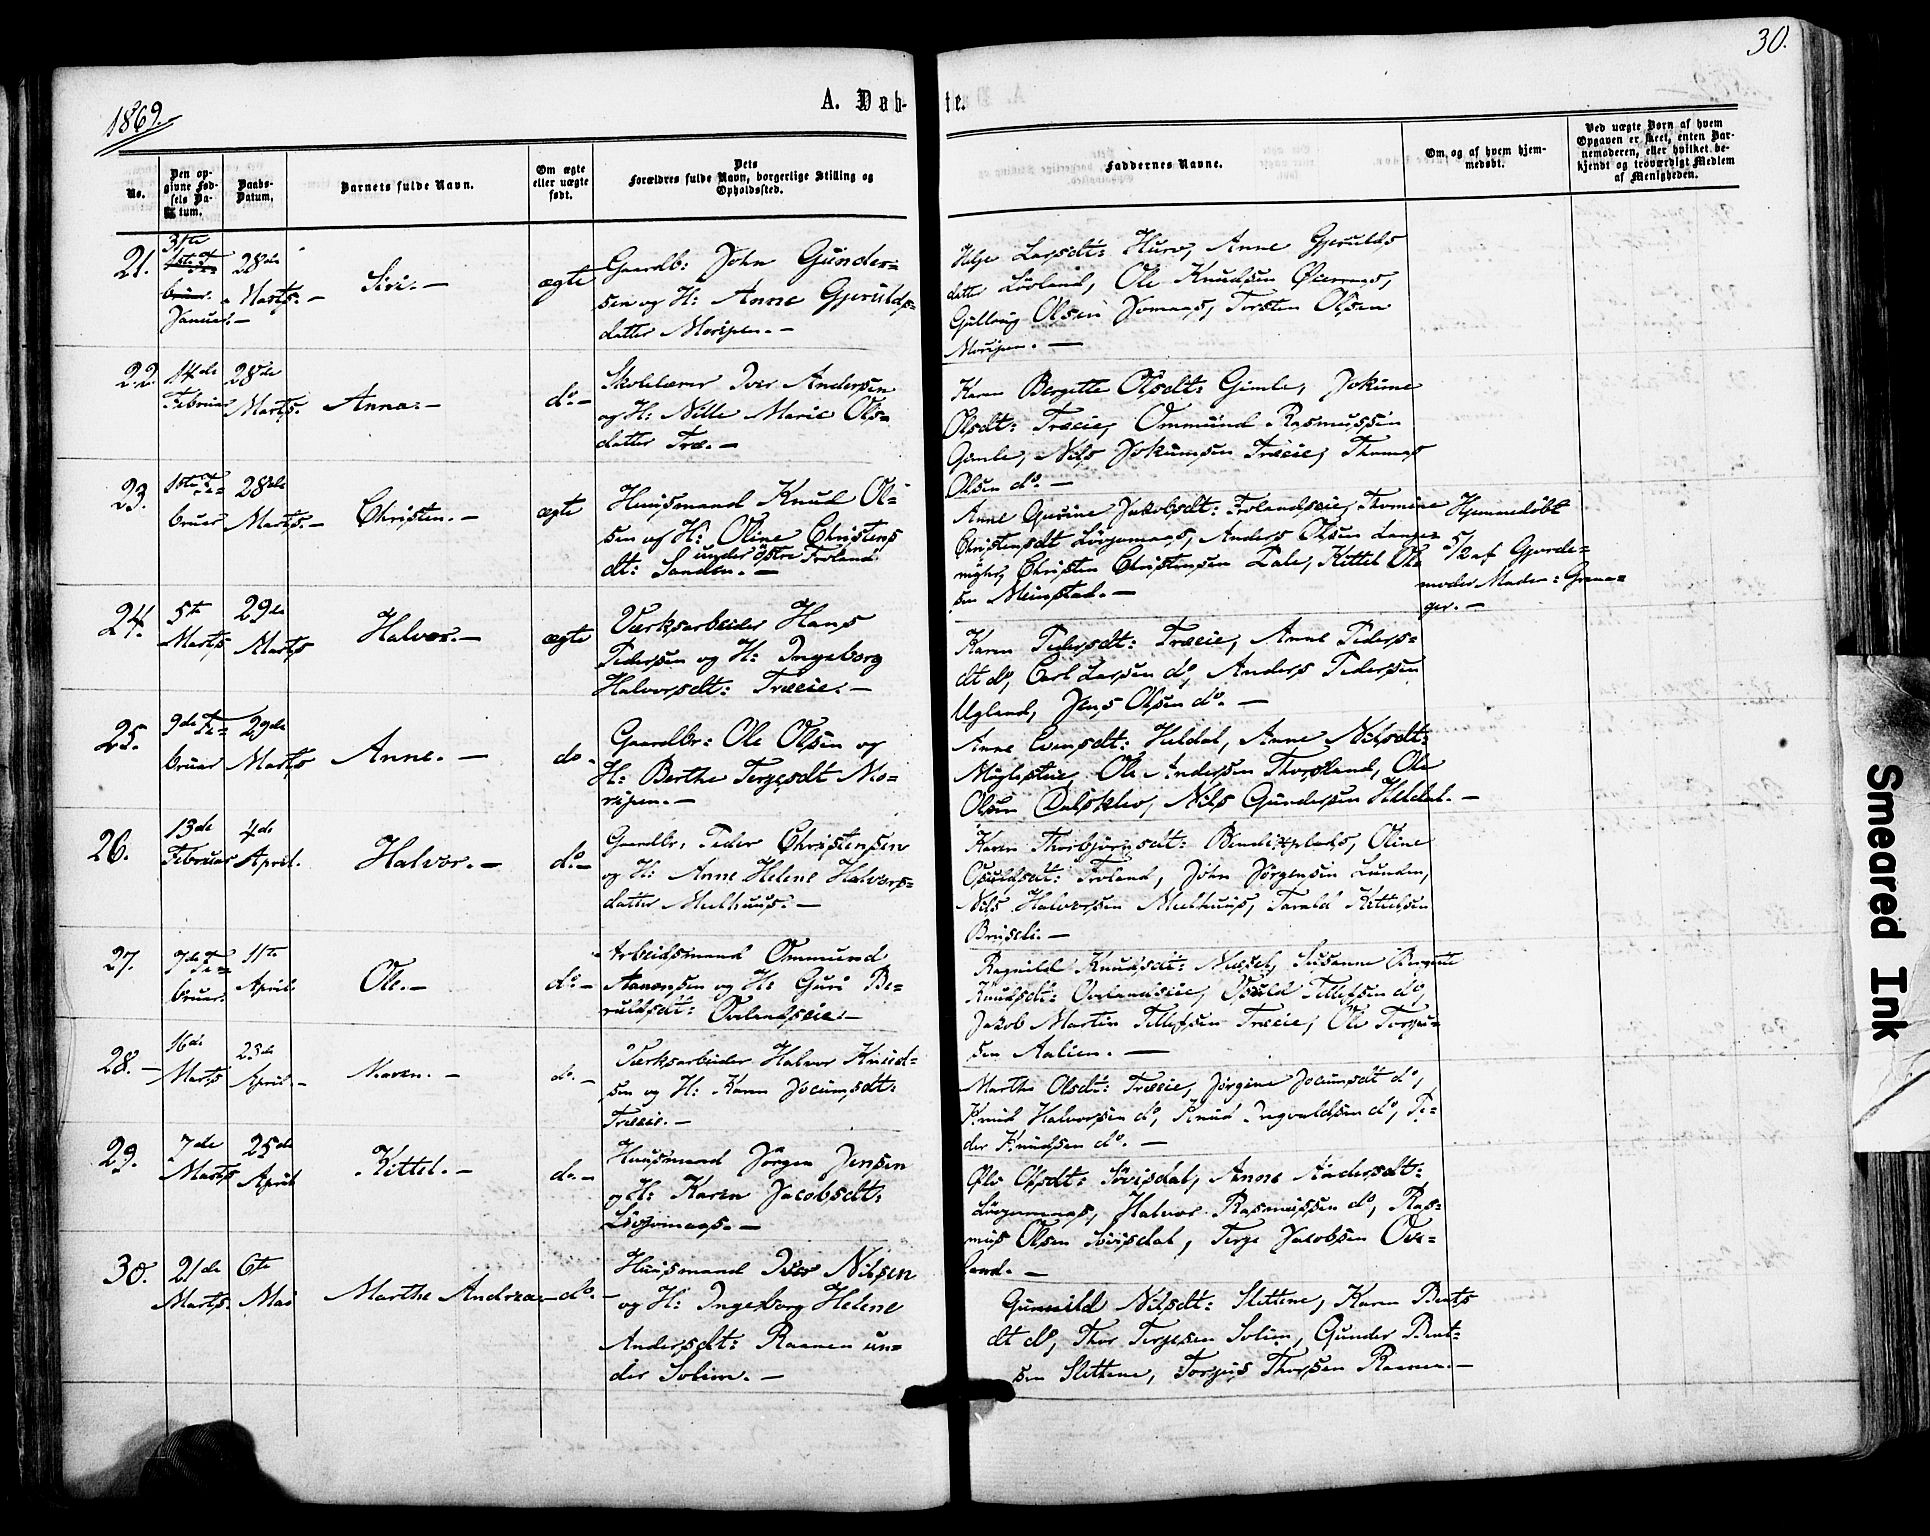 30.
1869.
A. Døb-
te.
No.
Den op-
givne Fød-
sels Da-
tum.
Daabs-
Datum.
Barnets fulde Navn.
Om ægte
eller uægte
født.
Dets
Forældres fulde Navn, borgerlige Stilling og
Opholdssted.
Faddernes Navne.
Om, og af hvem hjem-
medøbt.
Ved uægte Børn af hvem
Opgaven er skeet, enten Bar-
nemoderen, eller hvilket be-
kjendt og troværdigt Medlem
af Menigheden.
21.
31te
1ste Fe-
bruar.
Januar.-
28de
Marts.-
Siri.-
ægte
Gaardb: John Gunder-
sen og H: Anne Gjeruldsdatter Moripen.-
Helje Larsdt: Hurv, Anne Gjerulds
datter Lövland, Ole Knudsen
Gullaug Olsen Jomaas, Torsten Olsen
Moripen.-
22.
14de
Februar
28de
Marts.
Anna.-
do.-
Skolelærer Iver Andersen
og H: Nille Marie Ols-
datter Træ.-
Karen Bergitte Olsdt: Gimle, Jokine
Olsdt: Træeie, Ommund Rasmussen
Gimle, Nils Jokumsen Træeie, Thomas
Olsen do.-
23.
1ste Fe-
bruar
28de
Marts.-
Christen.-
ægte
Huusmand Knud Ol-
sen og H: Oline Christens
dt: Sanden.-
under östre Froland
Anne Gurine Jakobsdt: Frolandseie, Thomine
Christensdt Lövjomaas, Anders Olsen Lange-
myhr, Christen Christensen Dale, Kittel Ol-
sen Meinstad.-
Hjemmedöbt
5/2 af Gjorde-
moder Maden: Grana-
ger.-
24.
5te
Marts
29de
Marts
Halvor.-
ægte
Værksarbeider Hans
Pedersen og H: Ingeborg
Halvorsdt: Træeie.-
Karen Pedersdt: Træeie, Anne Peders-
dt do, Carl Larsen do, Anders Pedersen
Ugland, Jens Olsen do.-
25.
9de Fe-
bruar
29de
Marts
Anne.-
do.
Gaardbr: Ole Olsen og
H: Berthe Terjesdt Mo-
ripen.-
Anne Evensdt: Heldal, Anne Nilsdt:
Ole Andersen Thorsland, Ole
Olsen Dalsklev, Nils Gundersen Heldal.-
26.
13de
Februar
4de
April.
Halvor.-
do.-
Gaardbr, Peder Christensen
og H: Anne Helene Halvors-
datter Melhuus.-
Karen Thorbjörnsdt: Bendixplads, Oline
Osuldsdt: Froland, John Jørgensen Lunden,
Nils Halvorsen Melhuus, Tarald Kittelsen
Bruseli.-
27.
7de Fe-
bruar.
11te
April.
Ole.-
do.-
Arbeidsmand Ommund
Aanonsen og H: Guri Be-
ruldsdt: Ovelandseie.-
Ragnild Knudsdt: Messel, Susanne Bergitte
Knudsdt: Ovelandseie, Osuld Tellefsen do,
Jakob Martin Tellefsen Træeie, Ole Torju-
sen Aalien.-
28.-
16de
Marts
25de
April.-
Maren.-
do.-
Værksarbeider Halvor Knud-
sen og H: Karen Jocumsdt:
Træeie.-
Marthe Olsdt: Træeie, Jørgine Jocumsdt do,
Knud Halvorsen do, Knud Ingvaldsen do, Pe-
der Knudsen do.-
29.
7de
Marts
25de
April
Kittel.-
do.-
Huusmand Jörgen Jensen
og H: Karen Jacobsdt:
Lövjomaas.-
Olsdt: Lövisdal, Anne Andersdt:
Lövjomaas, Halvor Rasmussen do, Ras-
mus Olsen Lövisdal, Terje Jacobsen Ove-
land.-
30.
21de
Marts.
6te
Mai
Marthe Andrea.-
do.-
Huusmand Iver Nilsen
og H: Ingeborg Helene
Andersdt: Raanen un-
der Solien.-
Gunnild Nilsdt: Slettene, Karen Bents
dt do, Thor Terjesen Solien, Gunder Bent-
sen Slettene, Torjus Thorsen Raanen.-
Smeared Ink